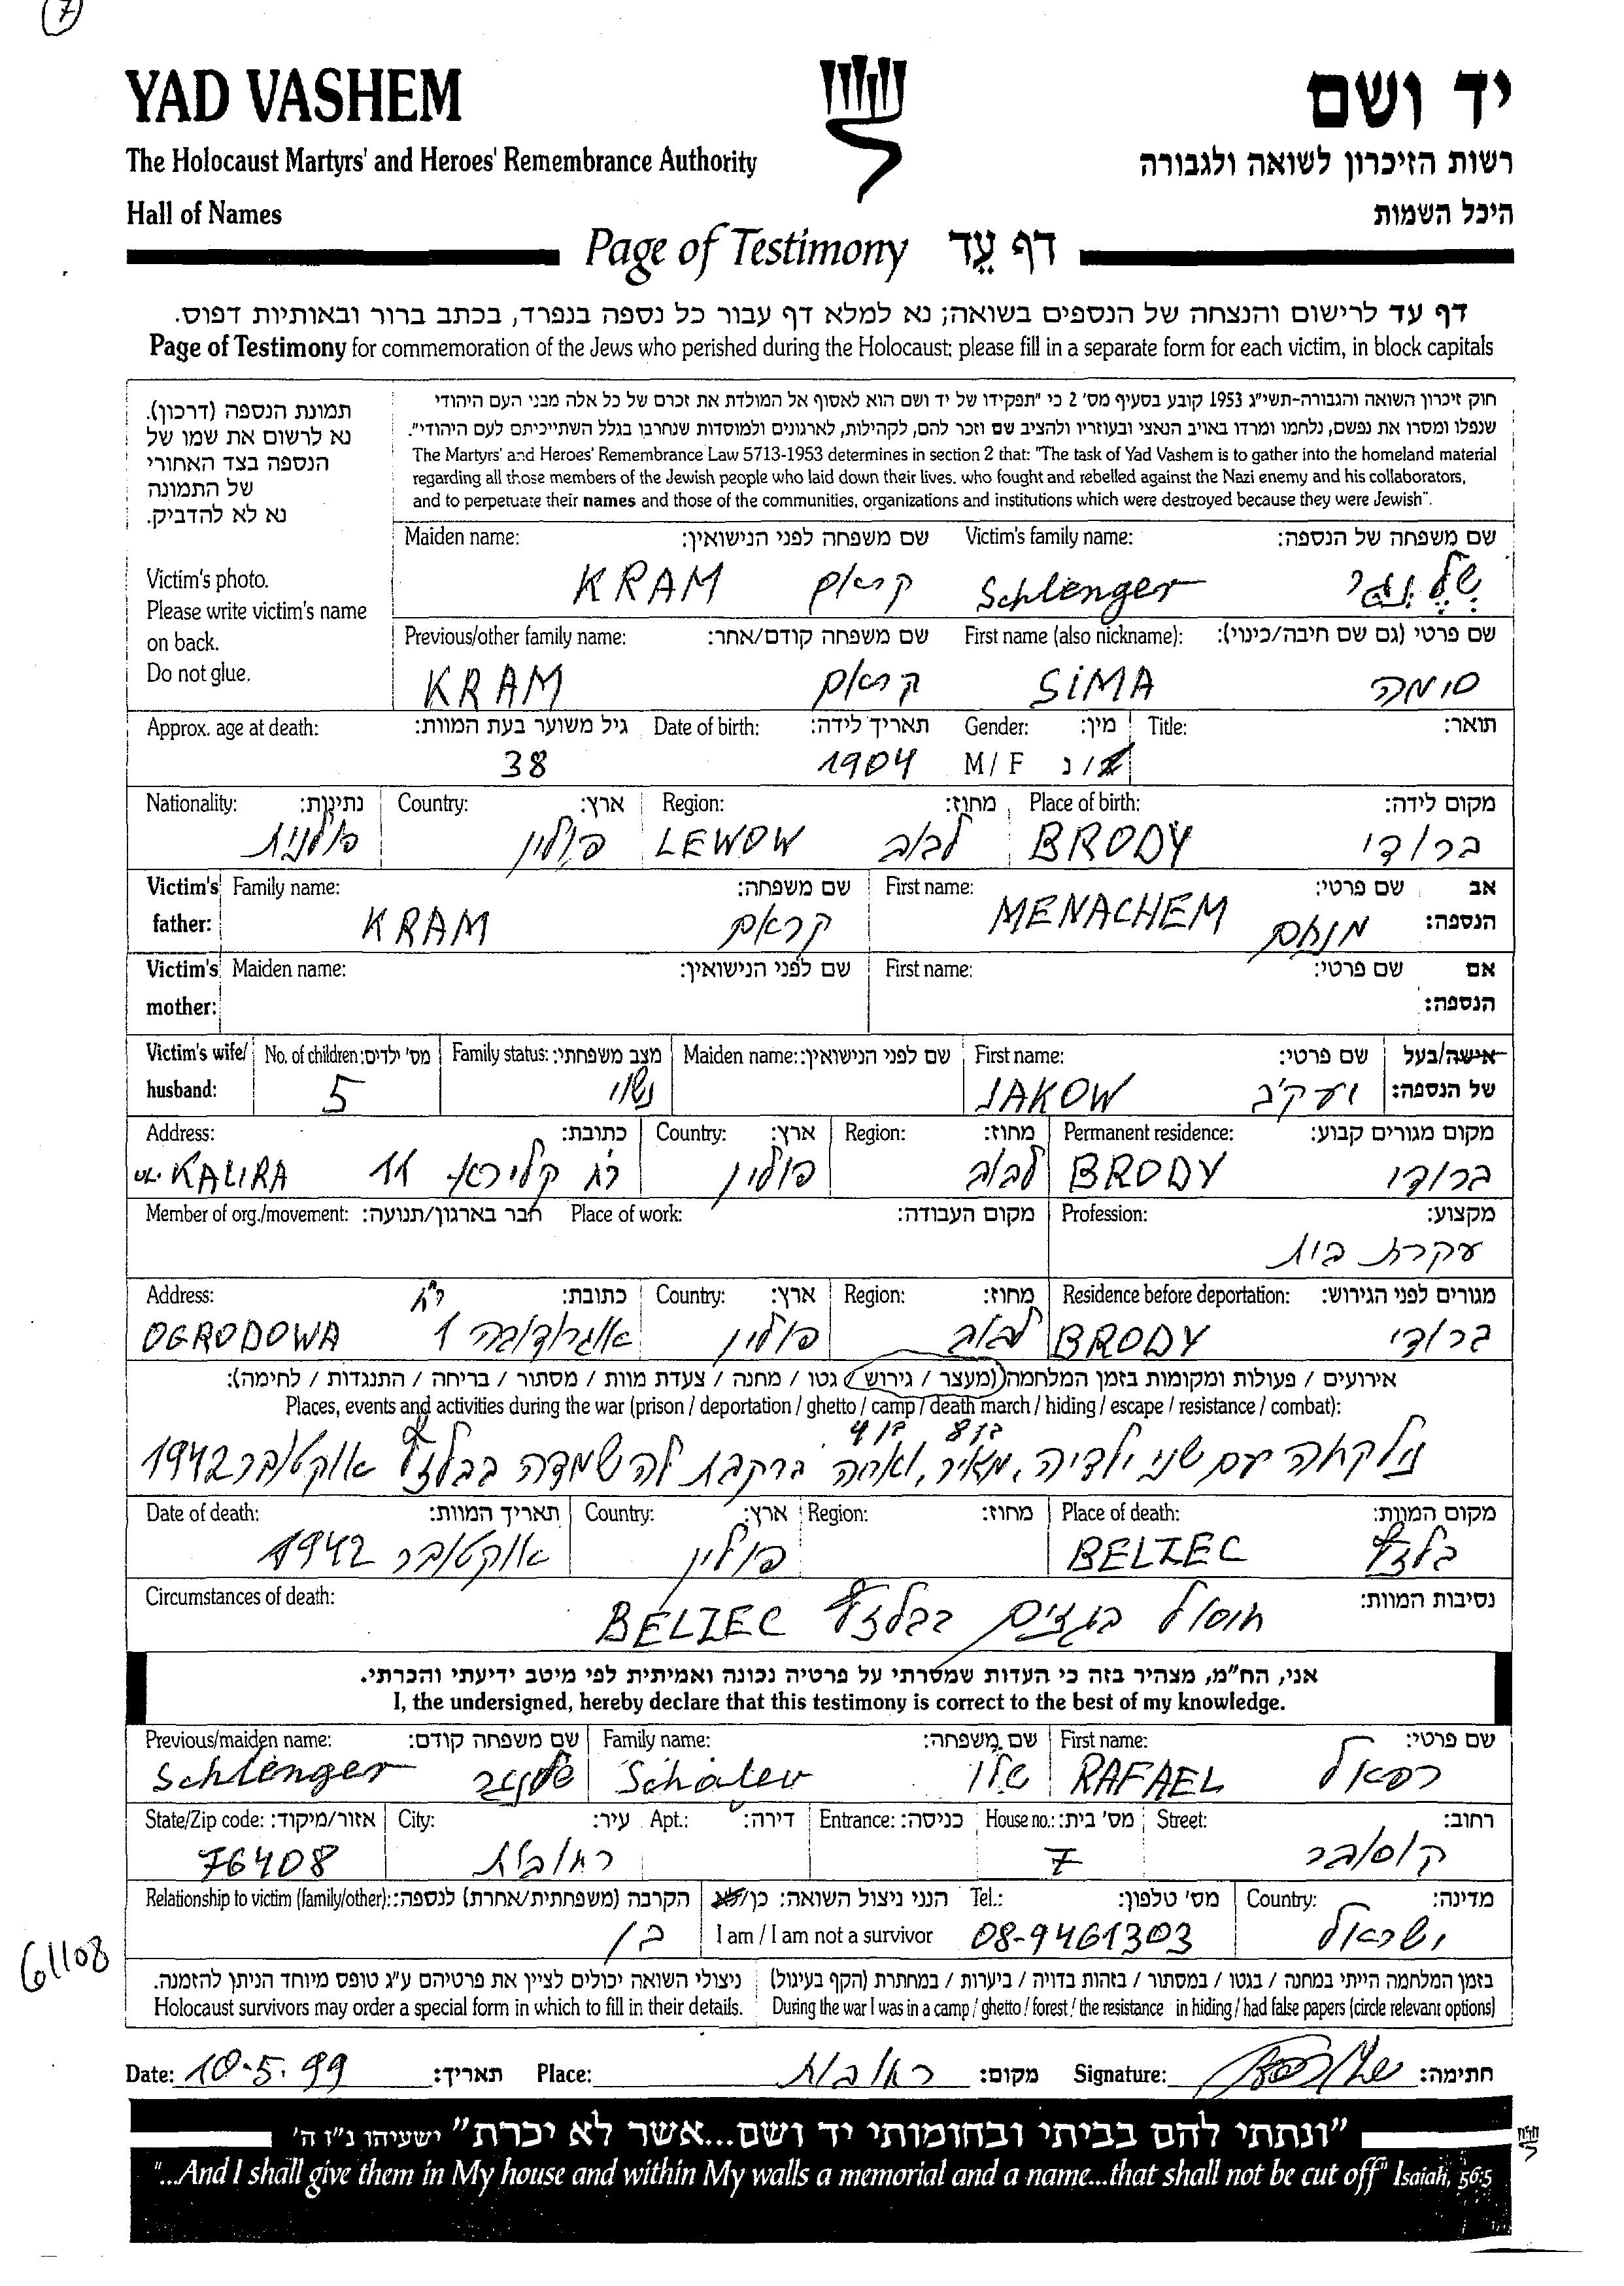 7
YAD VASHEM יד ושם
The Holocaust Martyrs' and Heroes' Remembrance Authority רשות הזיכרון לשואה ולגבורה
Hall of Names היכל השמות
Page of Testimony דף עֵד
דף עד לרישום והנצחה של הנספים בשואה; נא למלא דף עבור כל נספה בנפרד, בכתב ברור ובאותיות דפוס.
Page of Testimony for commemoration of the Jews who perished during the Holocaust; please fill in a separate form for each victim, in block capitals
תמונת הנספה (דרכון).
נא לרשום את שמו של
הנספה בצד האחורי
של התמונה
נא לא להדביק.
Victim's photo.
Please write victim's name
on back.
Do not glue.
חוק זיכרון השואה והגבורה-תשי"ג 1953 קובע בסעיף מס' 2 כי "תפקידו של יד ושם הוא לאסוף אל המולדת את זכרם של כל אלה מבני העם היהודי
שנפלו ומסרו את נפשם, נלחמו ומרדו באויב הנאצי ובעוזריו ולהציב שם וזכר להם, לקהילות, לארגונים ולמוסדות שנחרבו בגלל השתייכותם לעם היהודי".
The Martyrs' and Heroes' Remembrance Law 5713-1953 determines in section 2 that: "The task of Yad Vashem is to gather into the homeland material
regarding all those members of the Jewish people who laid down their lives. who fought and rebelled against the Nazi enemy and his collaborators,
and to perpetuate their names and those of the communities, organizations and institutions which were destroyed because they were Jewish".
Maiden name: שם משפחה לפני הנישואין: Victim's family name: שם משפחה של הנספה:
KRAM קראם Schlenger
Previous/other family name: שם משפחה קודם/אחר: First name (also nickname): שם פרטי (גם שם חיבה/כינוי):
KRAM קראם SIMA סימה
Approx. age at death: גיל משוער בעת המוות: Date of birth: תאריך לידה: Gender: מין: Title: תואר:
38 1904 M / F ז/נ
Nationality: נתינות: Country: ארץ: Region: מחוז: Place of birth: מקום לידה:
פולנית פולין LEWOW לבוב BRODY ברודי
Victim's father: Family name: שם משפחה: First name: שם פרטי: אב הנספה:
KRAM קראם MENACHEM מנחם
Victim's mother: Maiden name: שם לפני הנישואין: First name: שם פרטי: אם הנספה:
Victim's wife/ husband: No. of children: מס' ילדים: Family status: מצב משפחתי: Maiden name: שם לפני הנישואין: First name: שם פרטי: אישה/בעל של הנספה:
5 נשוי JAKOW יעקב
Address: כתובת: Country: ארץ: Region: מחוז: Permanent residence: מקום מגורים קבוע:
ul. KALIRA רח קליראי 11 פולין לבוב BRODY ברודי
Member of org./movement: חבר בארגון/תנועה: Place of work: מקום העבודה: Profession: מקצוע:
עקרת בית
Address: כתובת: Country: ארץ: Region: מחוז: Residence before deportation: מגורים לפני הגירוש:
OGRODOWA רח' אוגרודובה 1 פולין לבוב BRODY ברודי
אירועים / פעולות ומקומות בזמן המלחמה (מעצר / גירוש / גטו / מחנה / צעדת מוות / מסתור / בריחה / התנגדות / לחימה):
Places, events and activities during the war (prison / deportation / ghetto / camp / death march / hiding / escape / resistance / combat):
בן 8 בן 4
נילקחה עם שני ילדיה, מאיר, ואריה ברכבת להשמדה בבלזץ אוקטובר 1942
Date of death: תאריך המוות: Country: ארץ: Region: מחוז: Place of death: מקום המוות:
אוקטובר 1942 פולין BELZEC בלזץ
Circumstances of death: נסיבות המוות:
חוסל בגזים בבלזץ BELZEC
אני, הח"מ, מצהיר בזה כי העדות שמסרתי על פרטיה נכונה ואמיתית לפי מיטב ידיעתי והכרתי.
I, the undersigned, hereby declare that this testimony is correct to the best of my knowledge.
Previous/maiden name: שם משפחה קודם: Family name: שם משפחה: First name: שם פרטי:
Schlenger שלנגר Schalev שלו RAFAEL רפאל
State/Zip code: אזור/מיקוד: City: עיר: Apt.: דירה: Entrance: כניסה: House no.: מס' בית: Street: רחוב:
76408 רחובות 7 קוסובר
Relationship to victim (family/other): הקרבה (משפחתית/אחרת) לנספה: הנני ניצול השואה: כן/לא Tel.: מס' טלפון: Country: מדינה:
בן I am / I am not a survivor 08-9461303 ישראל
61108
ניצולי השואה יכולים לציין את פרטיהם ע"ג טופס מיוחד הניתן להזמנה. בזמן המלחמה הייתי במחנה / בגטו / במסתור / בזהות בדויה / ביערות / במחתרת (הקף בעיגול)
Holocaust survivors may order a special form in which to fill in their details. During the war I was in a camp / ghetto / forest / the resistance in hiding / had false papers (circle relevant options)
Date: 10.5.99 תאריך: Place: רחובות מקום: Signature: חתימה:
"ונתתי להם בביתי ובחומותי יד ושם...אשר לא יכרת" ישעיהו נ"ו ה'
"...And I shall give them in My house and within My walls a memorial and a name...that shall not be cut off" Isaiah, 56:5